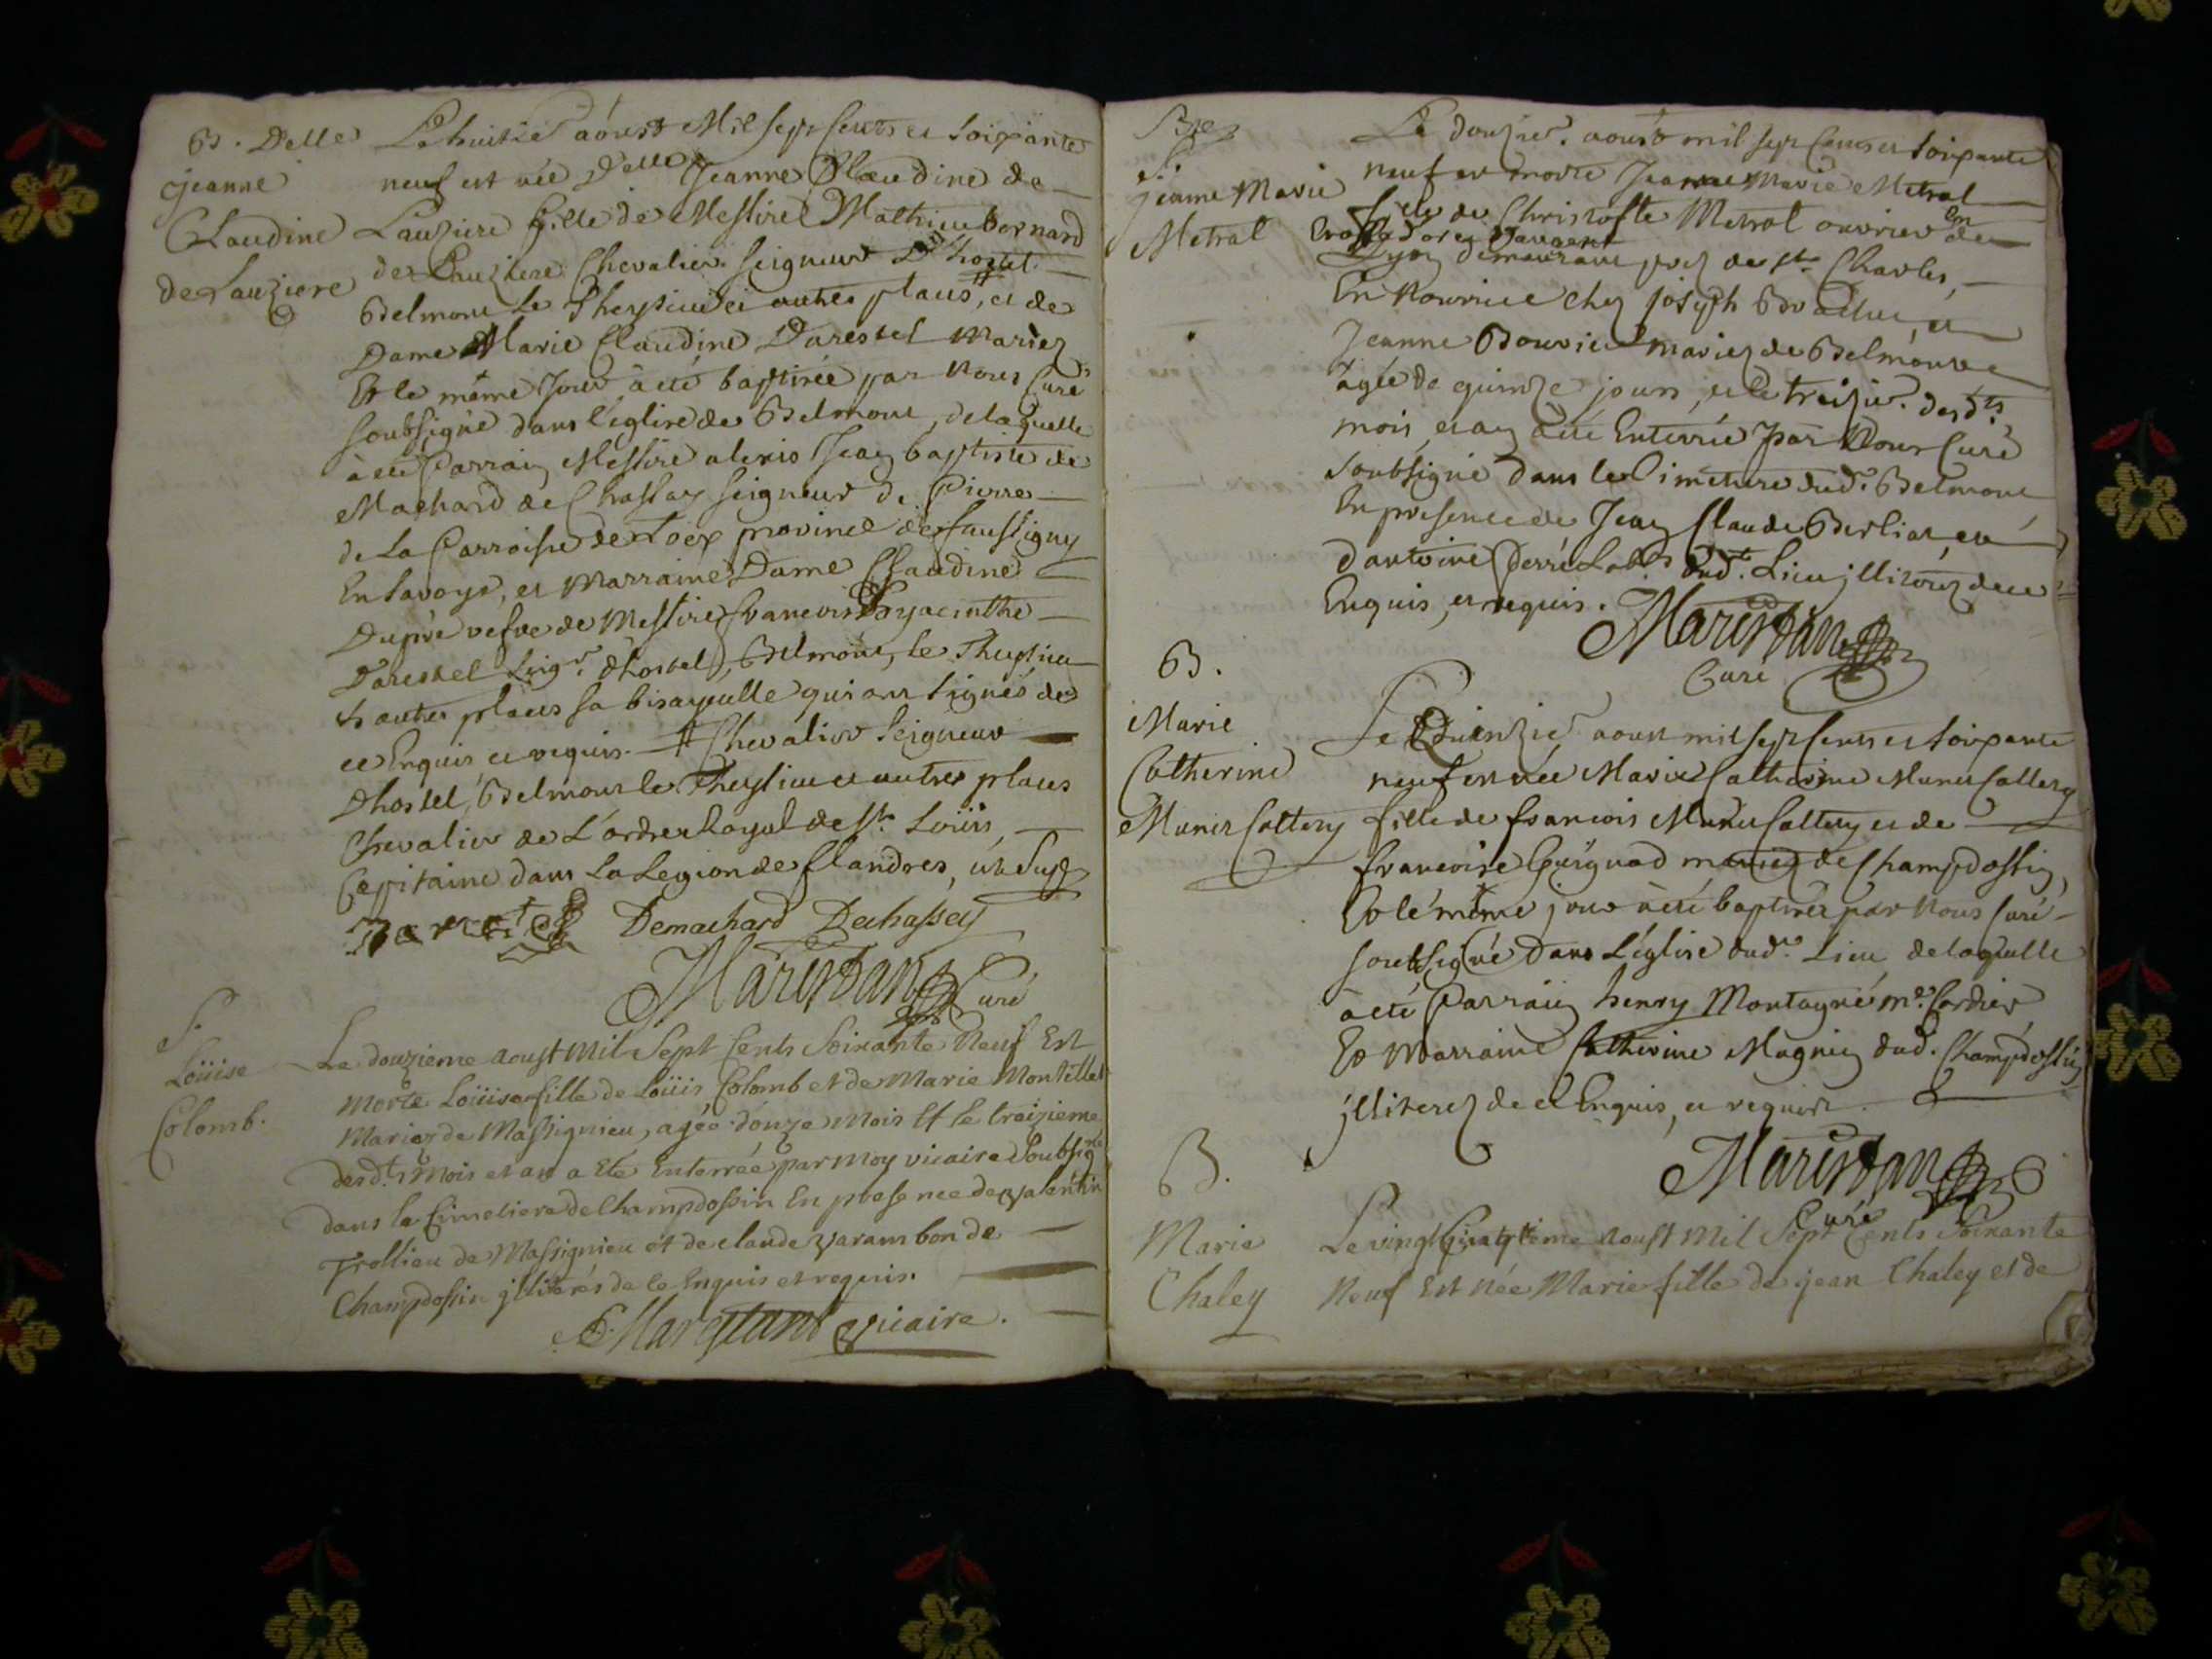 B. Delle
Jeanne
Claudine
de Lauziere
Le huitie aoust Mil sept Cents et soixante
neuf est née Delle Jeanne Claudine de
Lauziere fille de Messire Mathieu bernard
de Lauziere Chevalier Seigneur D'hostel
Belmont le Theysieu et autres places, et de
Dame Marie Claudine Darestel Mariez
Et le même Jour à eté baptisée par Nous Curé
soubsigné dans l'eglise de Belmont, de laquelle
à eté Parrain Messire alexis Jean baptiste de
Machard de Chassay seigneur de Pierre
de La Parroisse de province de faussigny
En Savoye, et Marraine Dame Claudine
Dupré vefve de Messire francois hyacinthe
Darestel seigr. d'hostel, Belmont, le Theysieu
et autres places sa bisayeulle qui ont signés de
ce Enquis et requis. # Chevalier Seigneur
Dhostel, Belmont le Theysieu et autres places
Chevalier de L'ordre Royal de st. Loüis,
Capitaine dans La Legion de flandres,
Demachard Dechassey
Maristan Curé
S.
Loüise
Colomb.
Le douzieme aoust Mil Sept Cents Soixante Neuf Est
Morte Loüise fille de Loüis Colomb et de Marie Montillet
Mariez de Massignieu, agée donze Mois Et le traizieme
desdts Mois et an a Eté Enterrée par Moy vicaire Soubsigné
dans le Cimetiere de Champdossin En presence de valentin
Trollieu de Massignieu et de claude varambon de
Champdossin illiterés de ce Enquis et requis.
Maristant vicaire.
S.
jeanne Marie
Metral
Le douzie. aoust mil sept Cents et soixante
neuf est morte Jeanne Marie Metral
fille de Christofle Metral ouvrier En
d'or et d'argent de
Lyon demeurant près de st. Charles,
En Nourrice chez joseph et
Jeanne Bouvier mariez de Belmont
agée de quinze jours, et le treizie. desdts
mois et an à eté Enterrée par Nous Curé
soubsigné dans le Cimetiere dud. Belmont
En presence de Jean Claude Berliat et
d'antoine Perré Labrs dud. Lieu illiterez de ce
Enquis, et requis.
Maristan
Curé
B.
Marie
Catherine
Munet Cattery
Le Quinzie aoust mil sept Cents et soixante
neuf est née Marie Catherine Munet Cattery
fille de francois Munet Cattery et de
francoise Guignod mariez de Champdossin,
Et le même jour à eté baptisée par Nous Curé
soubsigné dans L'église dud. Lieu de laquelle
à eté Parrain henry Montagné me. Cordier
Et Marraine Catherine Magnin dud. Champdossin
illiterez de ce Enquis, et requis.
Maristan
Curé
B.
Marie
Chaley
Le vingt aoust Mil Sept Cents Soixante
Neuf Est Née Marie fille de jean Chaley et de